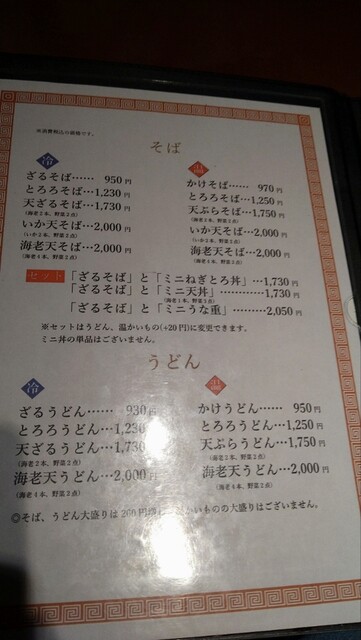 ※消費税込の価格です。
そば
冷
ざるそば…… 950円
とろろそば…1,230円
天ざるそば…1,730円
(海老2本、野菜2点)
いか天そば…2,000円
(いか2本、野菜2点)
海老天そば…2,000円
(海老4本、野菜2点)
温
かけそば…… 970円
とろろそば…1,250円
天ぷらそば…1,750円
(海老2本、野菜2点)
いか天そば…2,000円
(いか2本、野菜2点)
海老天そば…2,000円
(海老4本、野菜2点)
セット「ざるそば」と「ミニねぎとろ丼」…1,730円
「ざるそば」と「ミニ天丼」…………1,730円
「ざるそば」と「ミニうな重」………2,050円
※セットはうどん、温かいもの(+20円)に変更できます。
ミニ丼の単品はございません。
うどん
冷
ざるうどん…… 930円
とろろうどん…1,230
天ざるうどん…1,730
(海老2本、野菜2点)
海老天うどん…2,000円
(海老4本、野菜2点)
温
かけうどん…… 950円
とろろうどん…1,250円
天ぷらうどん…1,750円
(海老2本、野菜2点)
海老天うどん…2,000円
(海老4本、野菜2点)
◎そば、うどん大盛りは200円増 かいものの大盛りはございません。